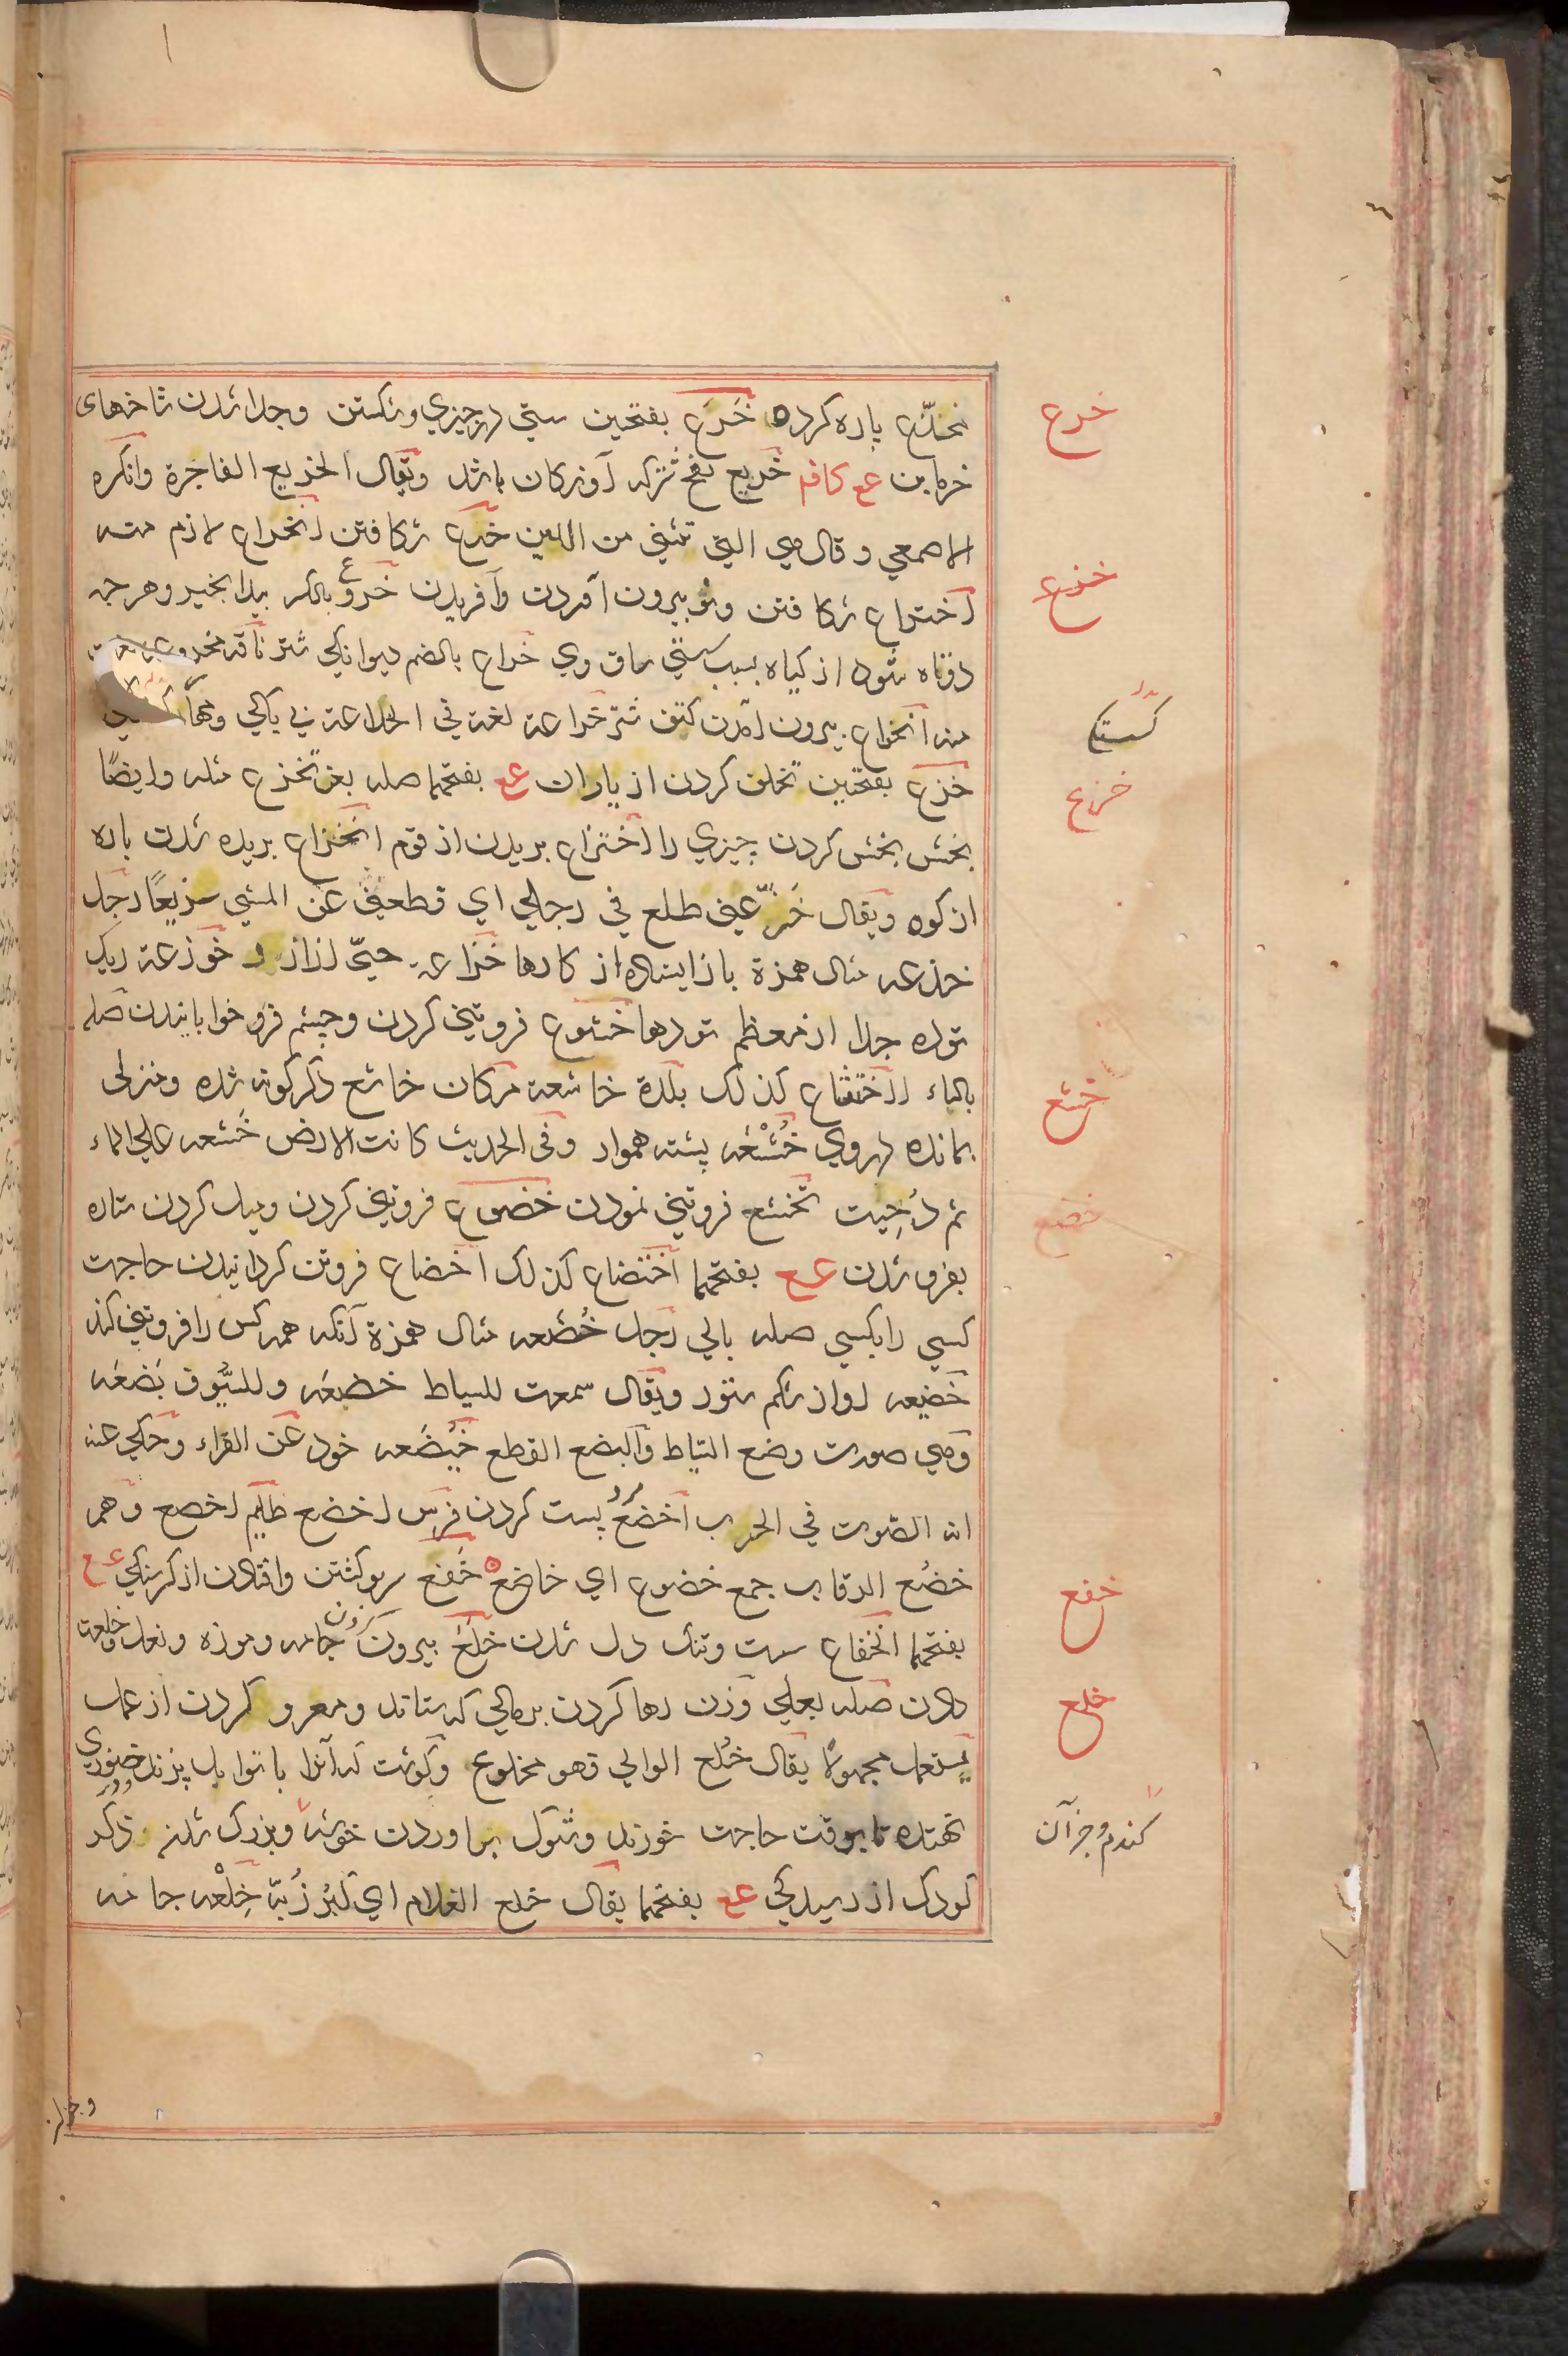 مخذّع پاره کرده خَرَع بفتحین سستی در چیزی و شکستن و جدا شدن شاخهای
خرع
خرماین عع کافم خریع بفتح شترکه آویزکان باشد ویقال الخریع الفاجرة وانکره
الاصمعی وقال هی التی تثنی من اللین خرع شکافتن انخراع لازم منه
اختراع شکافتن ونو بیرون آوردن وآفریدن خروع بالکسر بیدانجیر وهرچه
خذع
دوتاه شود از کیاه بسبب سستی ساق وی خراع بالضم دیوانکی شتر ناقه مخروعه
منه انخراع بیرون آمدن کتف شتر خراعة لغة فی الخلاعة
کستک
خزع بفتحین تخلف کردن از یاران عع بفتحهما صله بعن تخزع مثله وایضًا
خزع
بخش بخش کردن چیزی را اختزاع بریدن از قوم انخزاع بریده شدن پاره
از کوه ویقال خزّعنی ظلع فی رجلی ای قطعنی عن المشی رجل
خزعه مثال همزة باز ایستاده از کارها خزاعة حیّ از ازد و خوزعة ریک
توده جدا از معظم تودها خشوع فروتنی کردن وچشم فرو خوابانیدن صله
بالباء اختشاع کذلک بلدة خاشعة مکان خاشع ذکر کونه شده ومنزلی
خشع
نمانده دروی خُشْعَه پشته هموار وفی الحدیث کانت الارض خُشعه علی الماء
ثم دُحِیت تخشع فروتنی نمودن خضوع فروتنی کردن ومیل کردن ستاره
خضع
بفرو شدن عع بفتحهما اختضاع کذلک اخضاع فروتن کردانیدن حاجت
کسی را بکسی صله بالی رجل خُضَعه مثال همزة آنکه همه کس را فروتنی کند
خضیعه آواز شکم ستور ویقال سمعت للسیاط خضعَه وللسُّیوف بَضعَه
وهی صورت وضع السیاط والبضع القطع خیضَعه خود عن الفراء وحکی عنه
انه الصوت فی الحرب اخضعُ پست کردن فرس اخضع ظلیم اخضع وهم
خضُع الرقاب جمع خضوع ای خاضع خَفع سر کشتن وافتادن از کرسنکی عع
خفع
بفتحهما انخفاع سست وتنک دل شدن خلع بیرون کردن جامه وموزه ونعل وخلعت
دادن صله بعلی وزن رها کردن بر مالی که ستاند ومعزو کردن از عمل
خلع
یستعمل مجهولًا یقال خُلع الوالی فهو مخلوع وکوشت که آنرا با توابل پزند
نهند تا بوقت حاجت خورند وشوک برآوردن خوشه وبزرک شدن ذکر
کندم وجز آن
کودک از رسیدکی عع بفتحهما یقال خلع الغلام ای کبر زبّه خِلْعه جامه
وجز آن